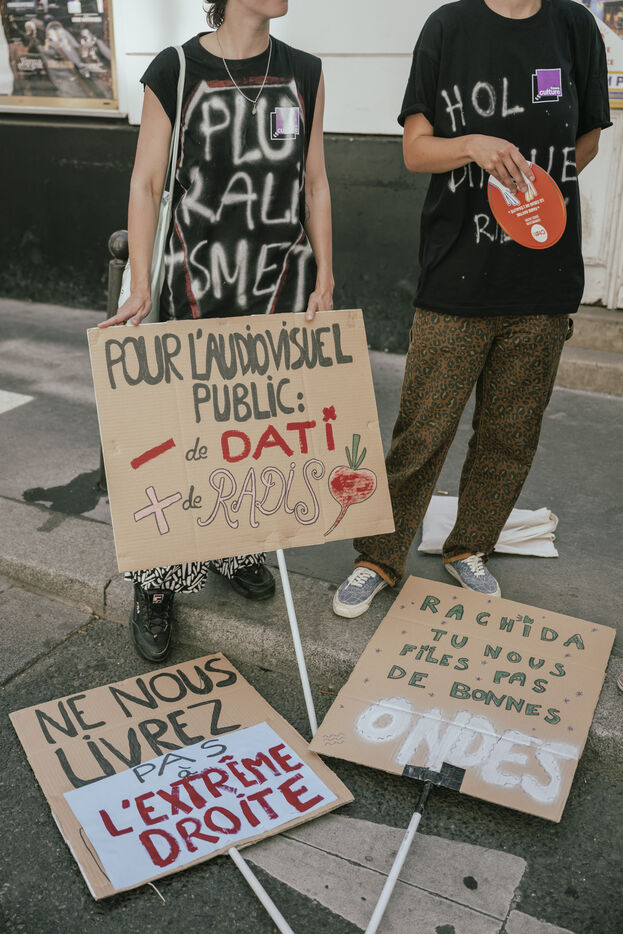 PLU
RALI
SME
culture
HOL
culture
POUR L'AUDIOVISUEL
PUBLIC:
- de DATI
+ de RADIS
RACHIDA
TU NOUS
FILES PAS
DE BONNES
ONDES
NE NOUS
LIVREZ
PAS
à
L'EXTRÊME
DROITE